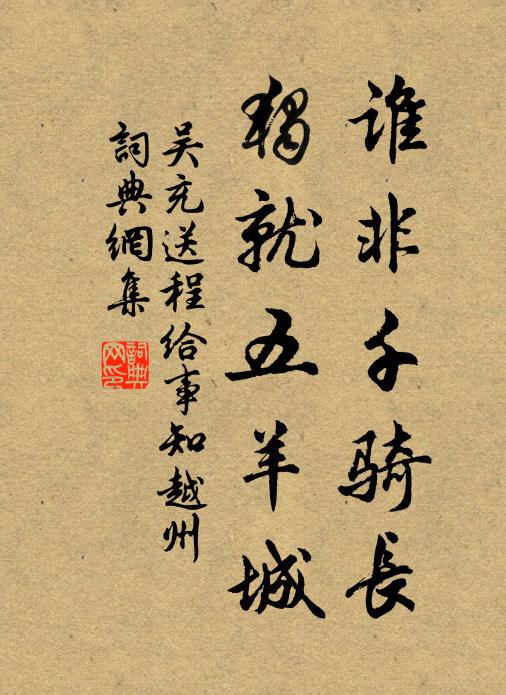 誰非千騎長
獨就五羊城
吴充送程给事知越州
詞典網集
詞典
网印